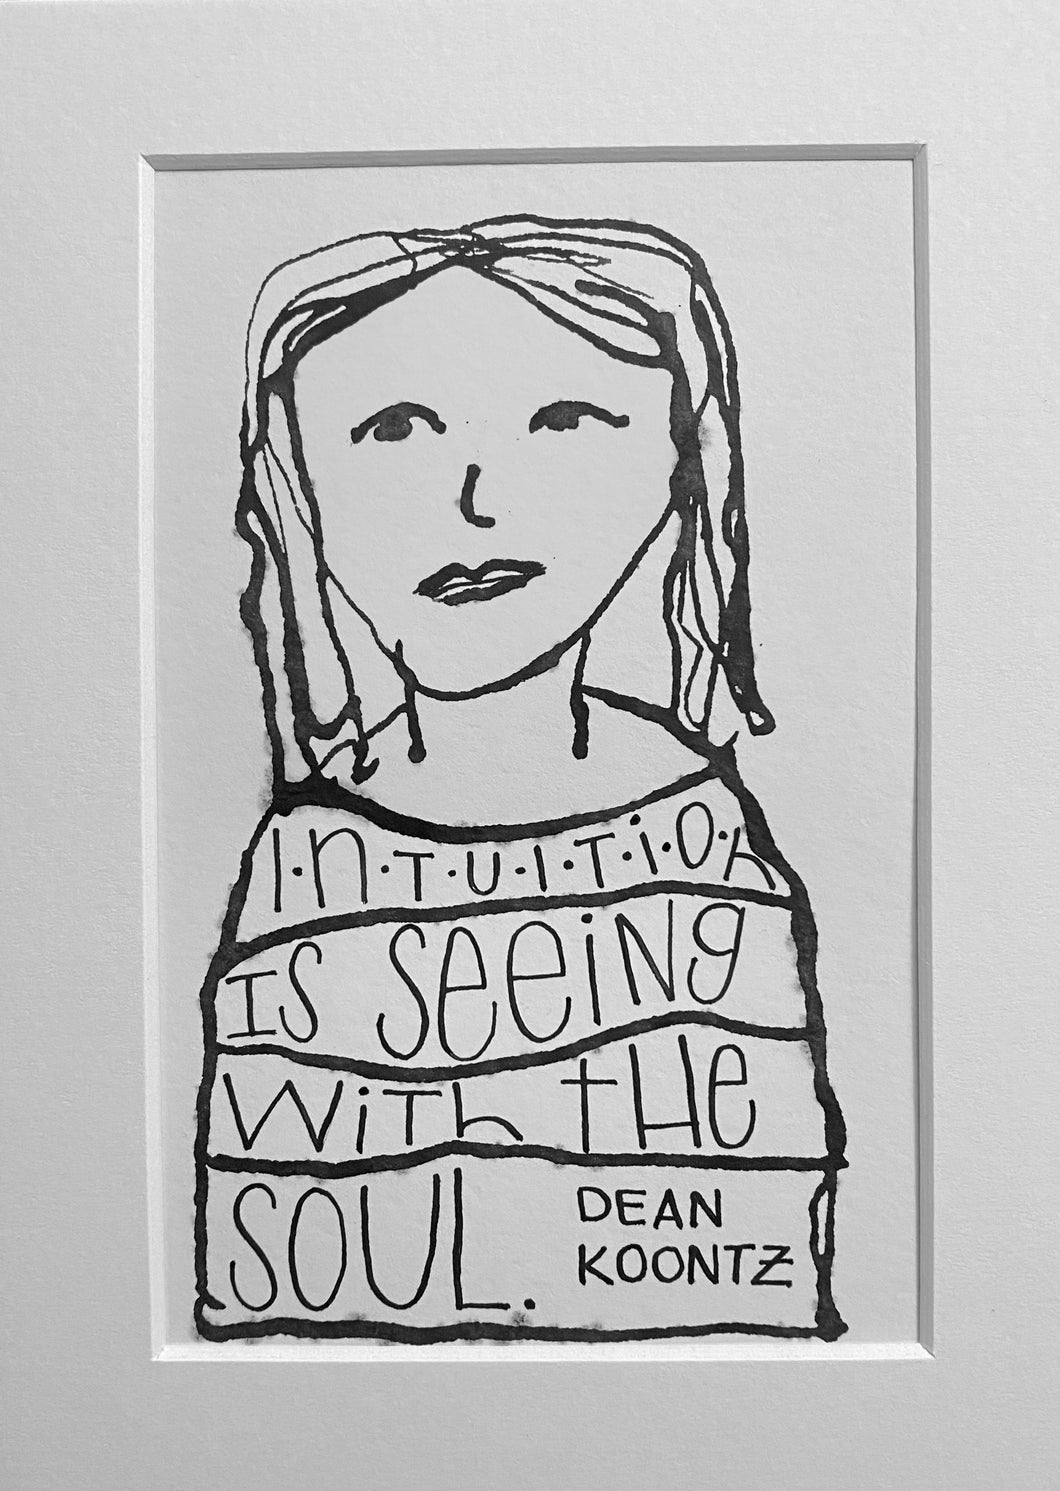 I·n·T·U·I·T·i·O·n
IS SeeiNg
WiTh tHe
SOUL.
DEAN
KOONTZ